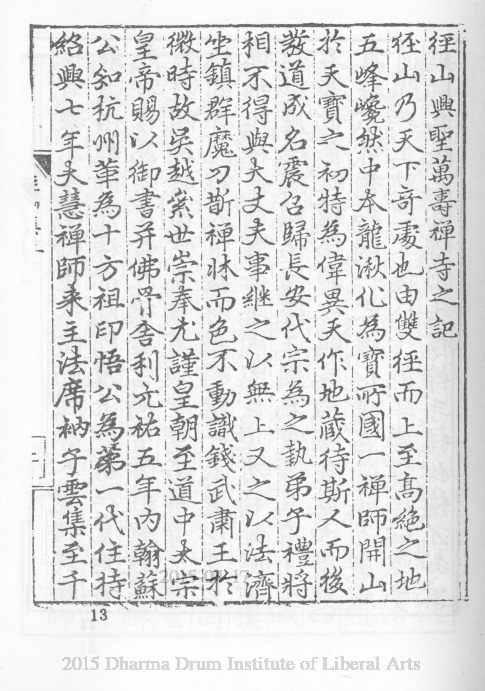 徑山興聖萬壽禪寺之記
徑山乃天下竒處也由雙徑而上至高絕之地
五峰巉然中本龍湫化為寶所國一禪師開山
於天寶之初特為偉異天作地藏待斯人而後
教道成名震召歸長安代宗為之執弟子禮將
相不得與大丈夫事繼之以無上又之以法濟
坐鎮群魔刀斮禪牀而色不動識錢武肅王於
微時故吳越累世崇奉尤謹皇朝至道中太宗
皇帝賜以御書并佛骨舍利元祐五年内翰蘇
公知杭州革為十方祖印悟公為第一代住持
紹興七年大慧禪師來主法席衲子雲集至千
13
2015 Dharma Drum Institute of Liberal Arts